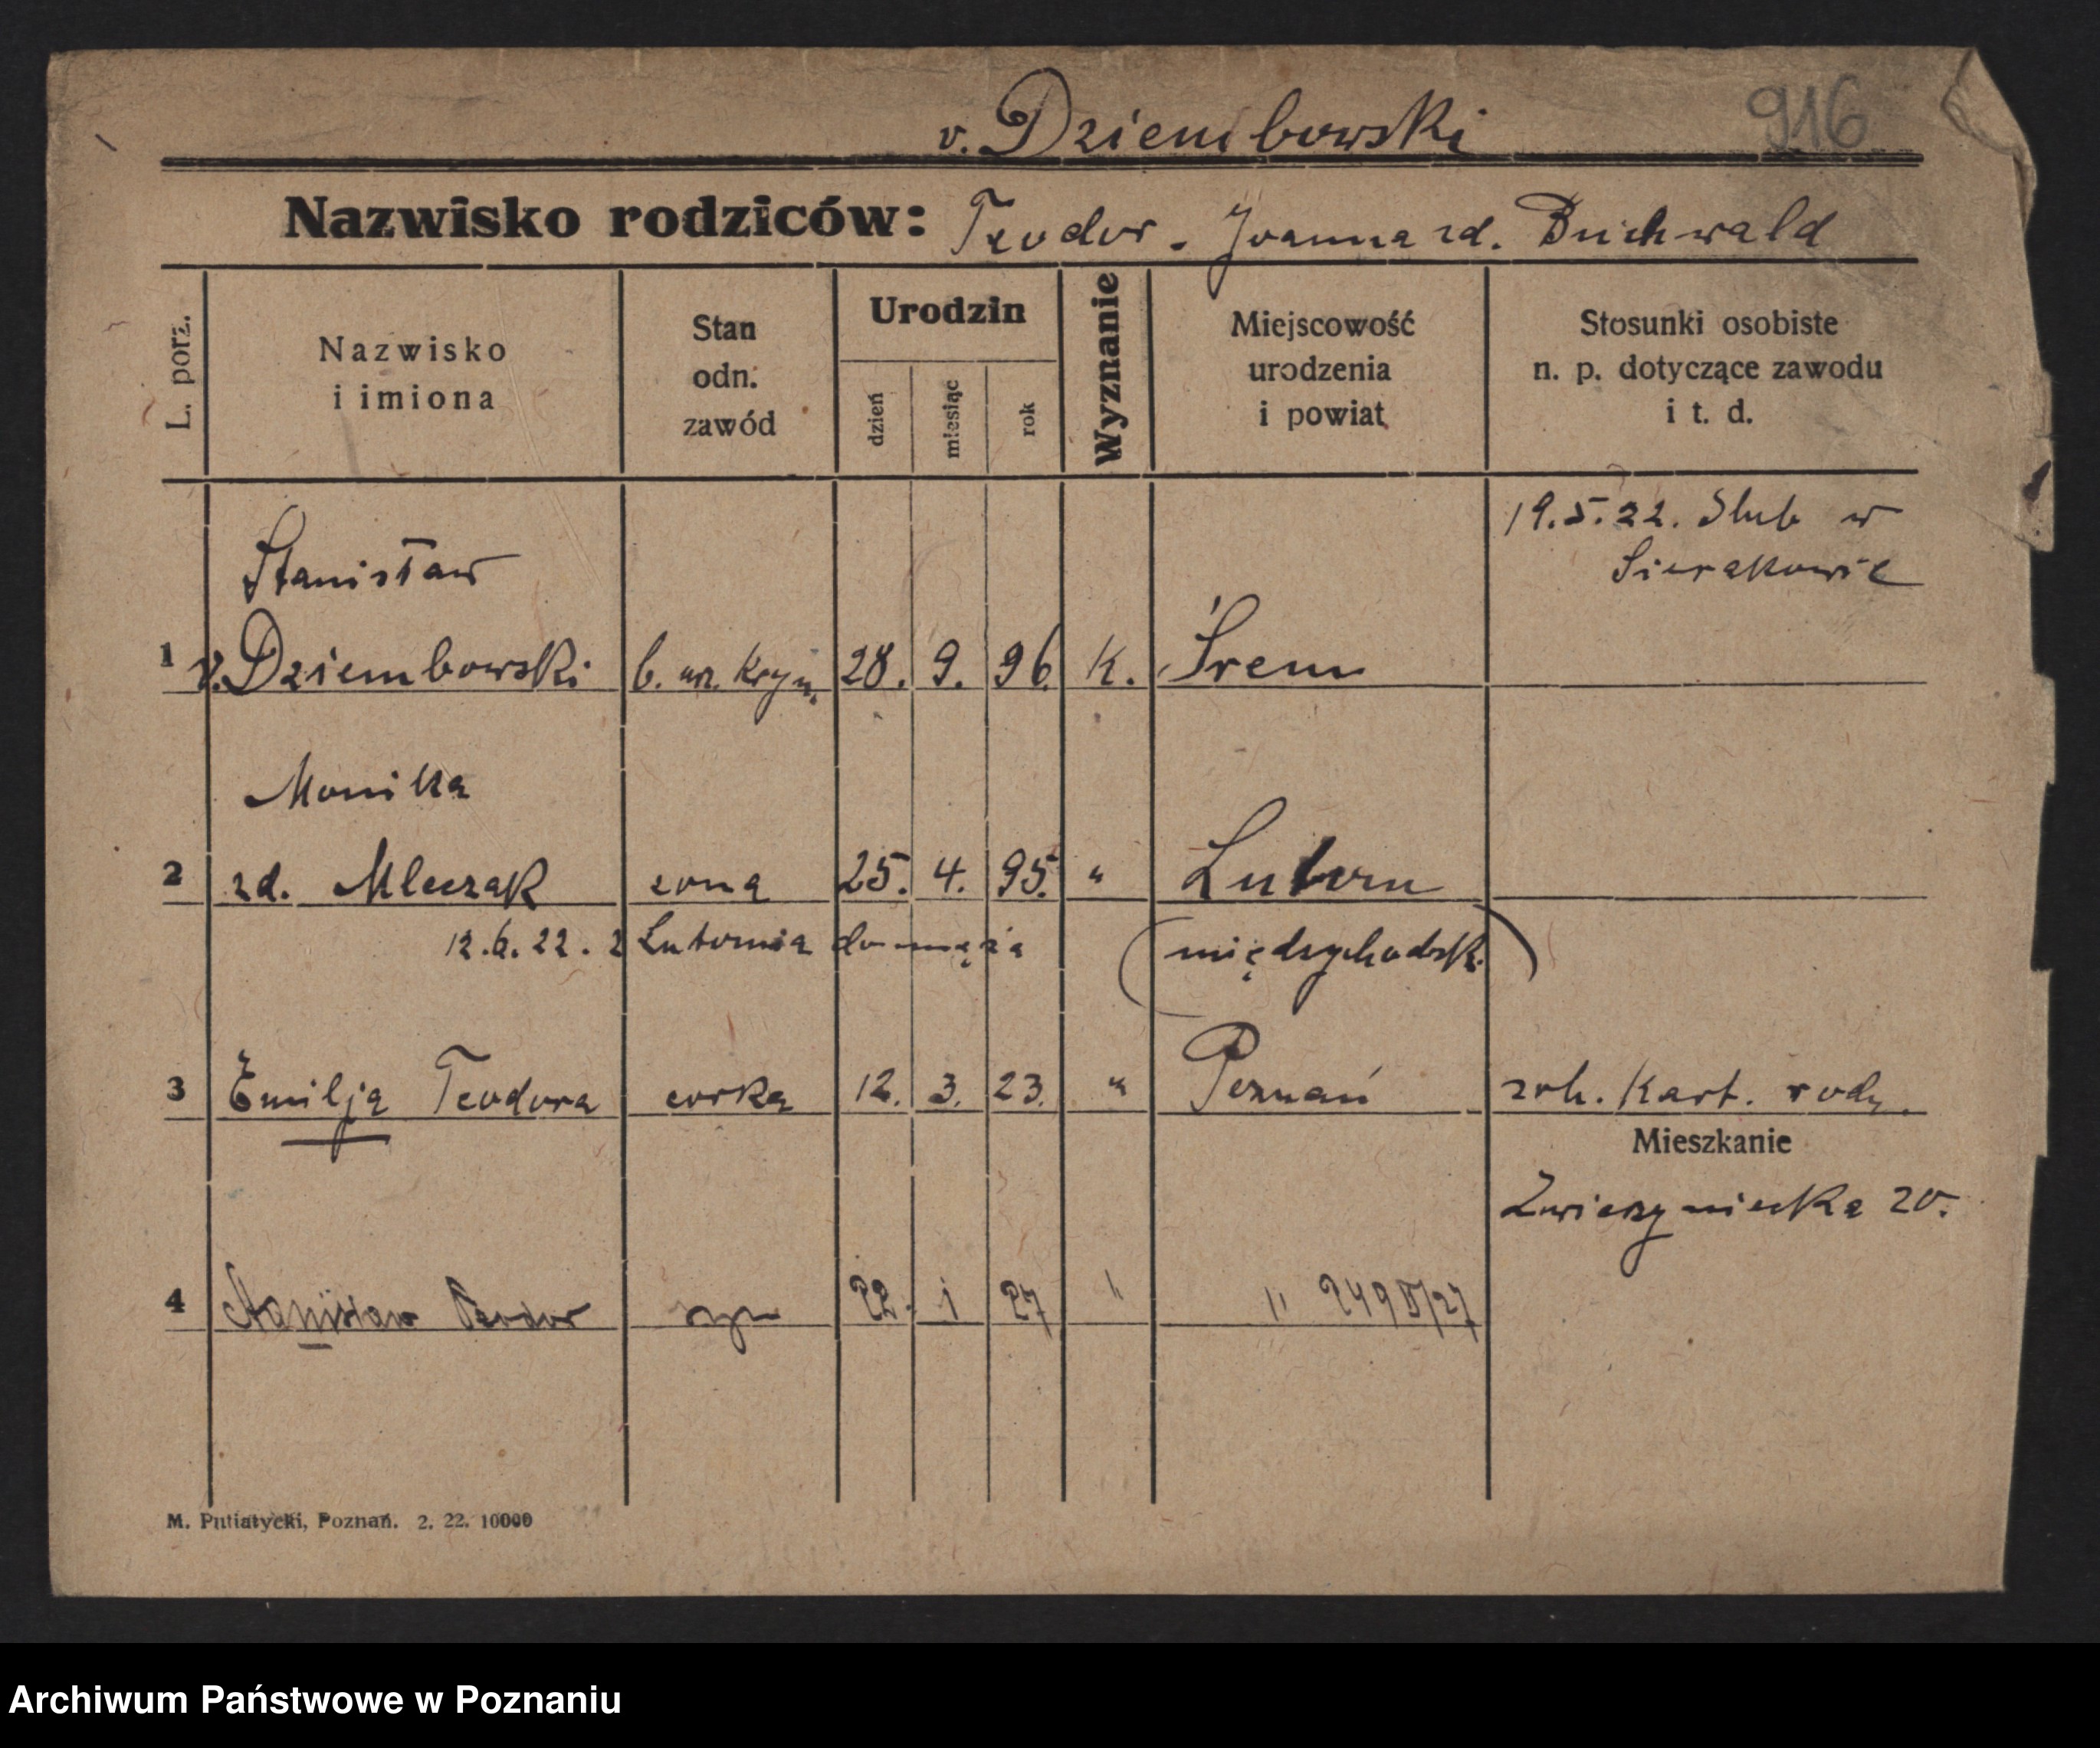 v. Dziembowski 916
Nazwisko rodziców: Teodor - Joanna zd. Buchwald
L. porz.
Nazwisko
i imiona
Stan
odn.
zawód
Urodzin
dzień
miesiąc
rok
Wyznanie
Miejscowość
urodzenia
i powiat
Stosunki osobiste
n. p. dotyczące zawodu
i t. d.
19.5.22. Slub w
Sierakowie
Stanisław
1 v. Dziembowski b. urz. Krym. 28. 9. 96. K. Śrem
Monika
2 zd. Mleczak zona 25. 4. 95. " Lutom
12.6.22. z Lutomia do męża (międzychodzk.)
3 Emilja Teodora corka 12. 3. 23. " Poznań zob. Kart. rodz.
Mieszkanie
Zwierzyniecka 20.
4 Stanisław Teodor syn 22. 1 27 " " 249
M. Putiatycki, Poznań. 2. 22. 10000
Archiwum Państwowe w Poznaniu